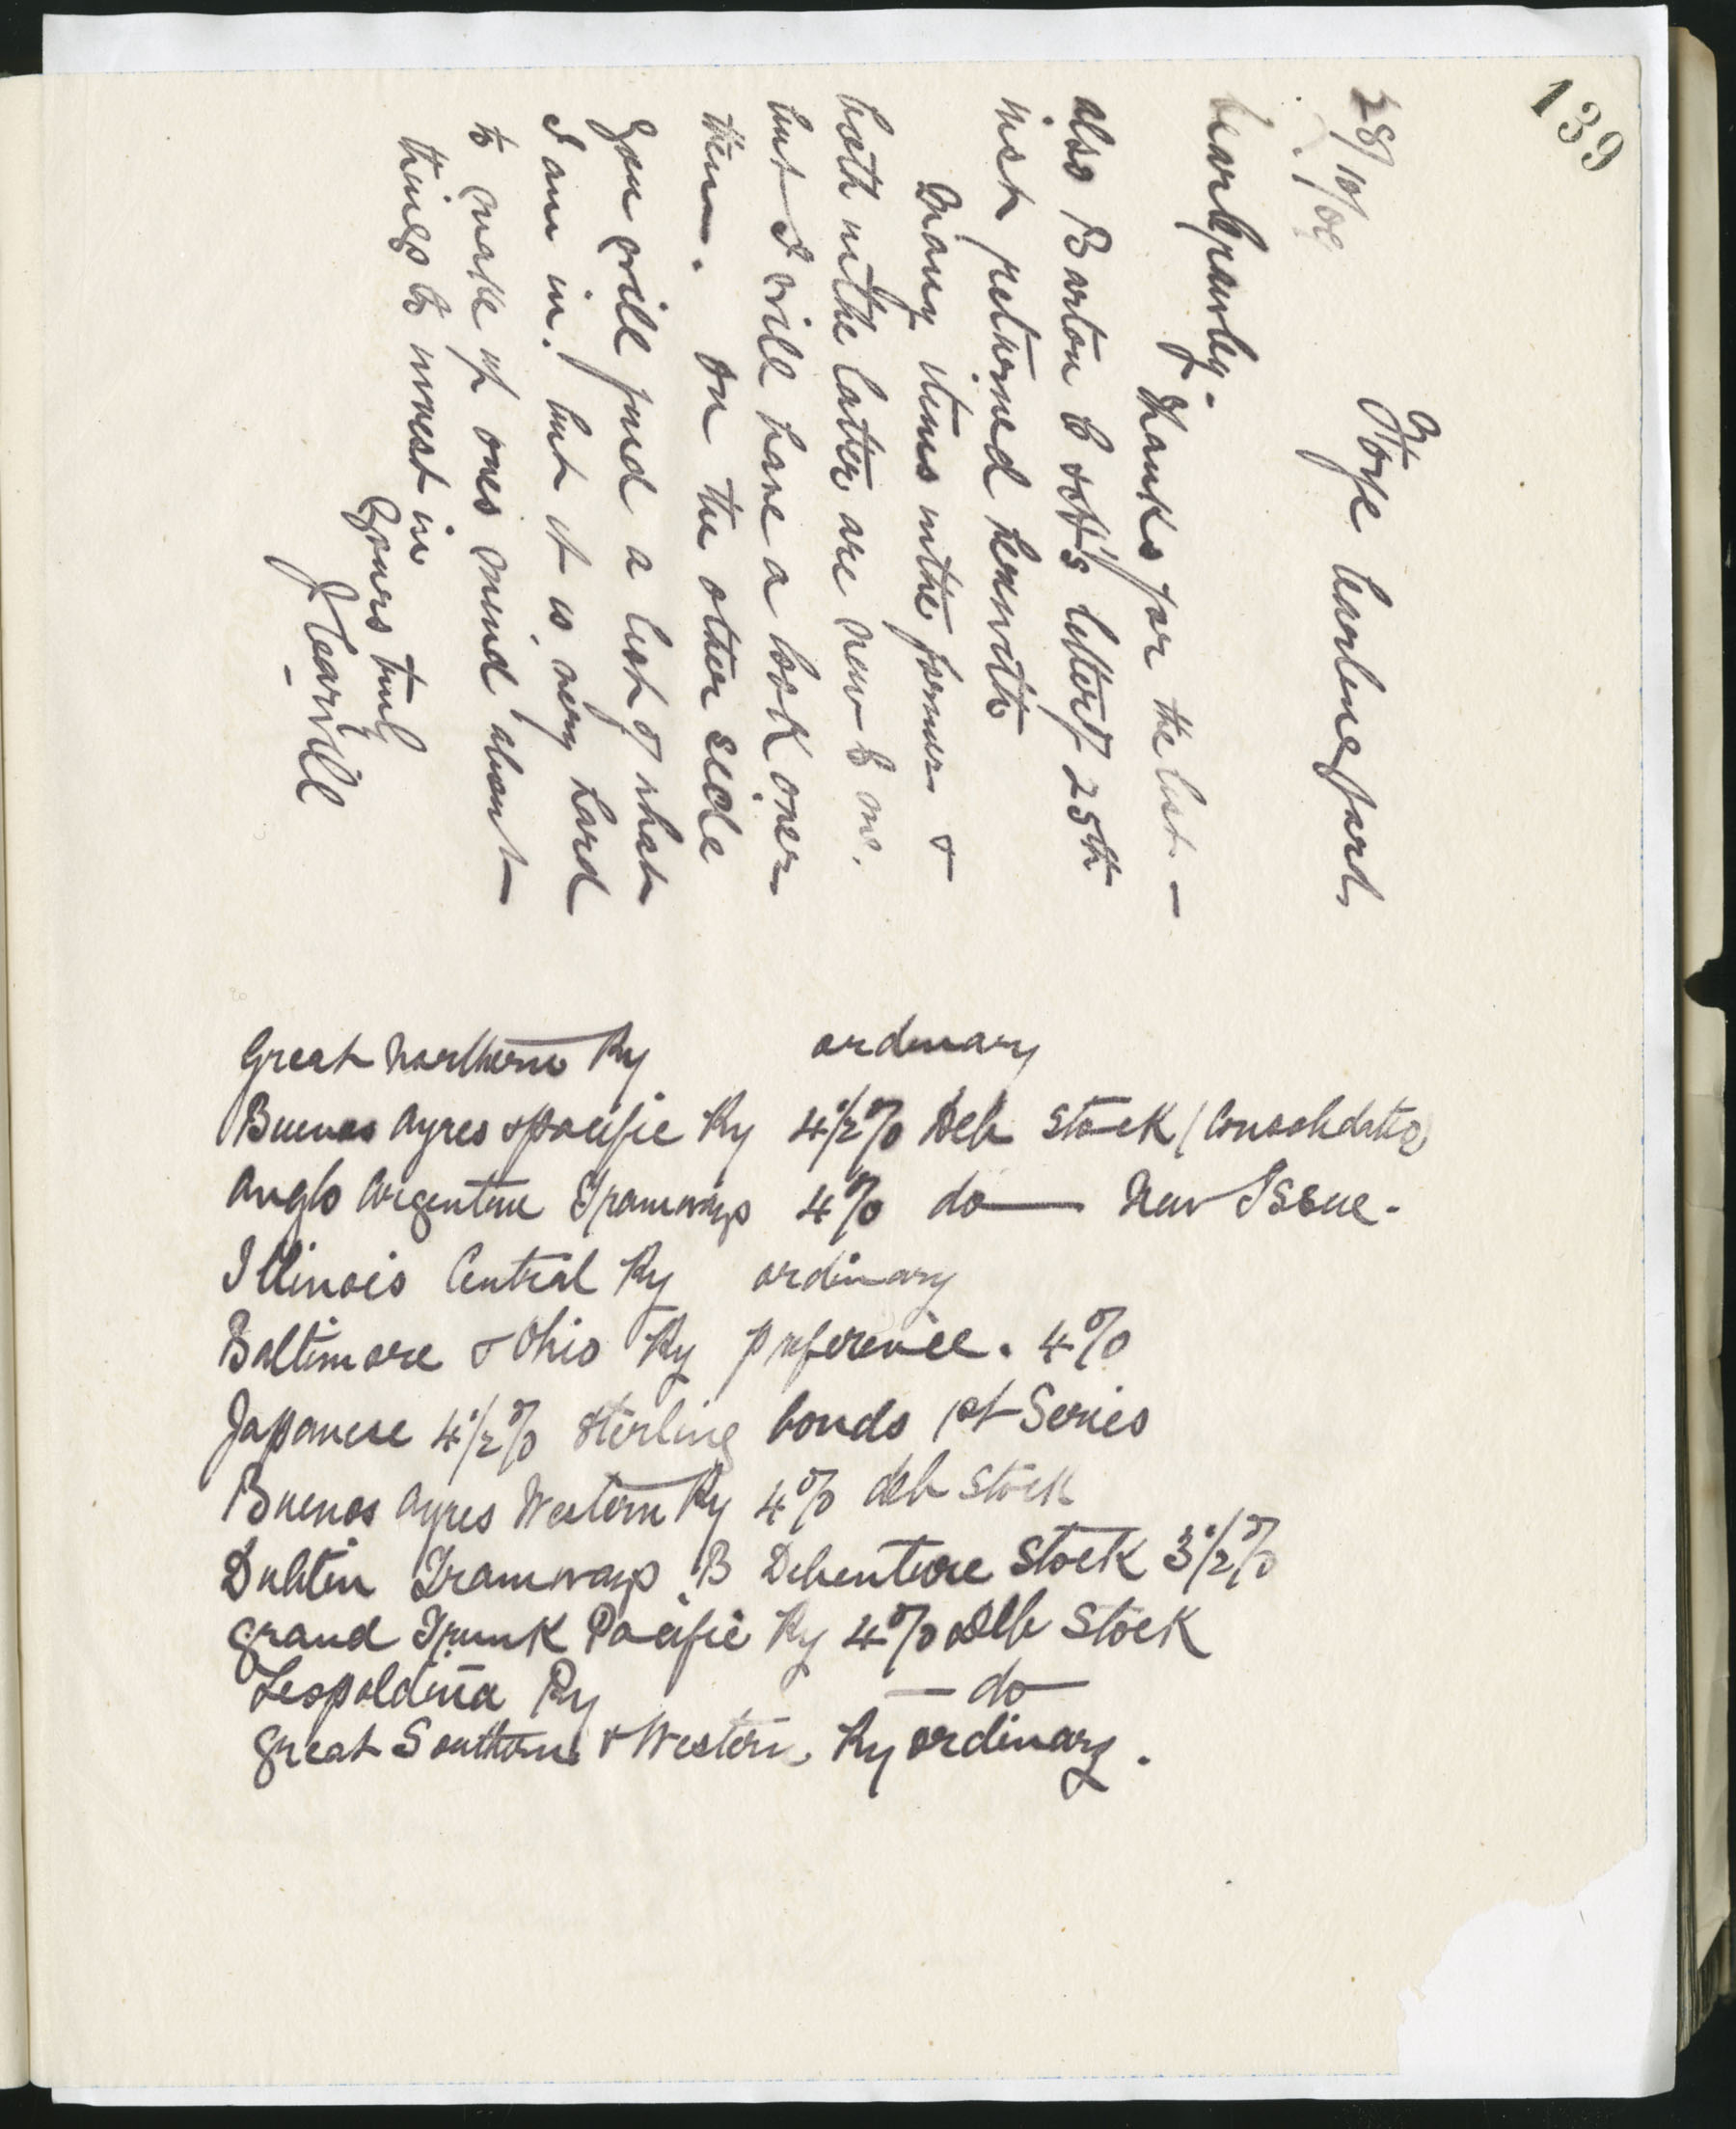 139
28/10/09
Dear
Thanks for the list —
also Barton & letter of 25th
just returned herewith
Many items in the former &
both in the latter are new to me.
but I will have a look over
them. On the other side
You will find a list of what
I am in. but it is very hard
to make up ones mind about
things to invest in
Yours truly
Great Northern Ry ordinary
Buenos Ayres & Pacific Ry 4½% Deb Stock (Consolidated)
Anglo Argentine Tramways 4% do — New Issue.
Illinois Central Ry ordinary
Baltimore & Ohio Ry preference. 4%
Japanese 4½% Sterling bonds 1st Series
Buenos Ayres Western Ry 4% deb stock
Dublin Tramways B Debenture Stock 3½%
Grand Trunk Pacific Ry 4% Deb Stock
Leopoldina Ry — do —
Great Southern & Western Ry ordinary.